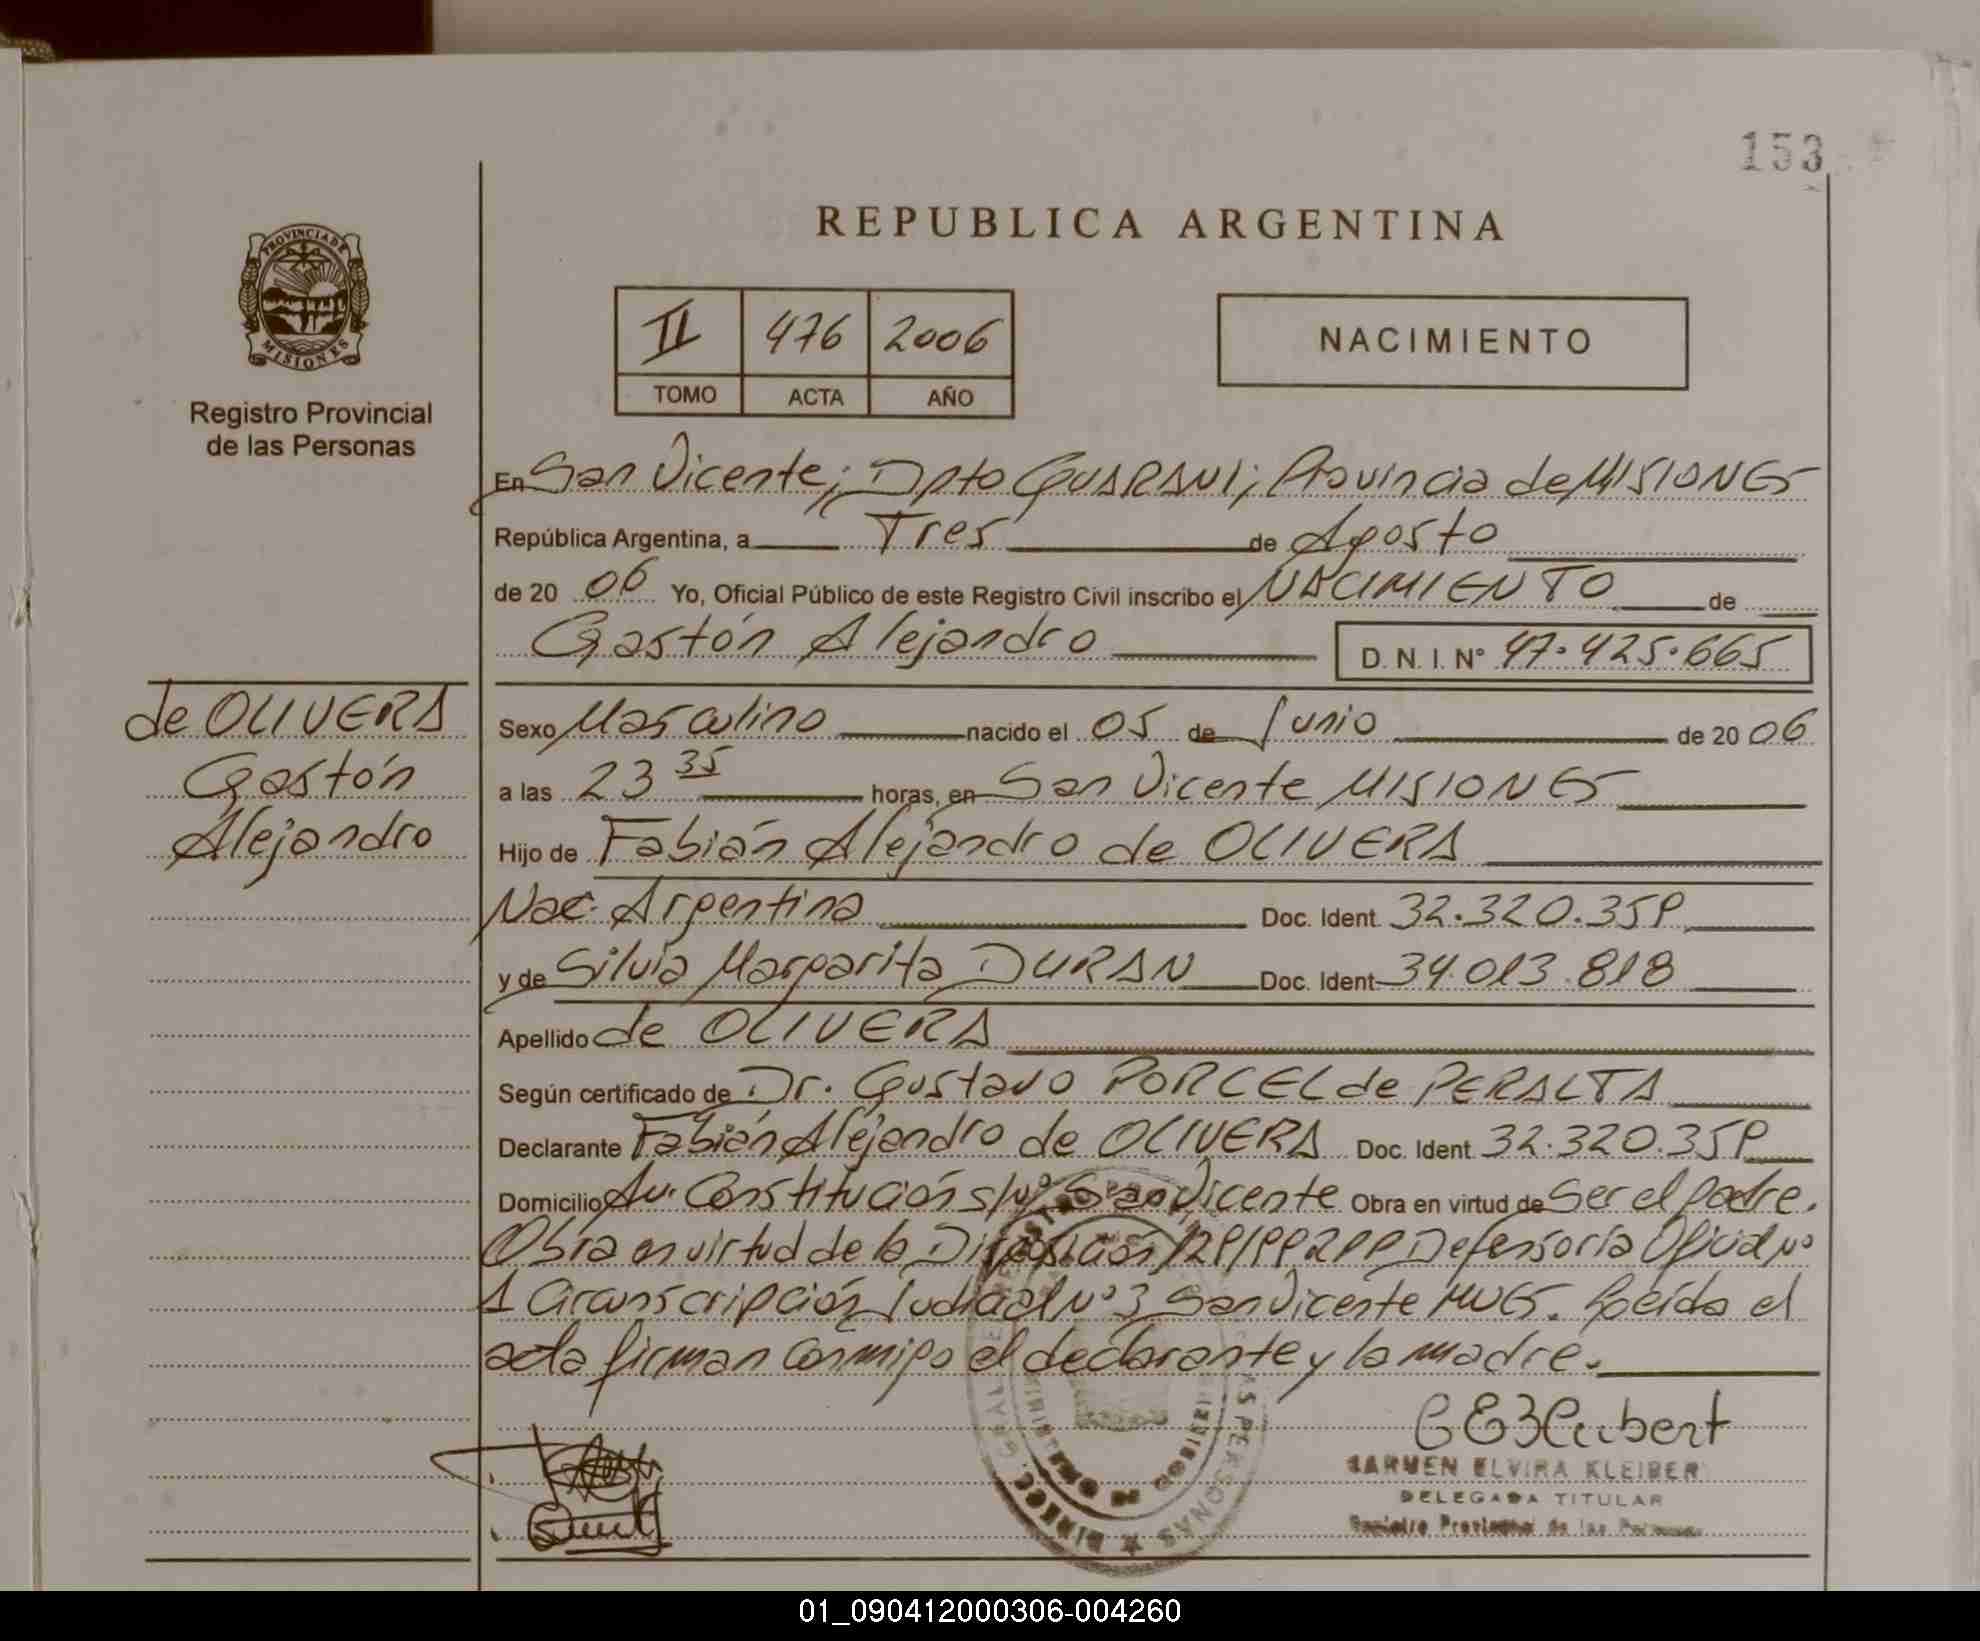 153
REPUBLICA ARGENTINA
PROVINCIA DE
MISIONES
Registro Provincial
de las Personas
II 476 2006
TOMO ACTA AÑO
NACIMIENTO
En San Vicente; Dpto GUARANI; Provincia de MISIONES
República Argentina, a Tres de Agosto
de 20 06 Yo, Oficial Público de este Registro Civil inscribo el NACIMIENTO de
Gastón Alejandro D.N.I. Nº 47.425.665
de OLIVERA
Gastón
Alejandro
Sexo Masculino nacido el 05 de Junio de 20 06
a las 23 35 horas, en San Vicente MISIONES
Hijo de Fabián Alejandro de OLIVERA
Nac. Argentina Doc. Ident. 32.320.359
y de Silvia Margarita DURAN Doc. Ident 34.013.818
Apellido de OLIVERA
Según certificado de Dr. Gustavo PORCEL de PERALTA
Declarante Fabián Alejandro de OLIVERA Doc. Ident. 32.320.359
Domicilio Av. Constitución s/nº San Vicente Obra en virtud de Ser el padre.
Obra en virtud de la Disposición Defensoría Oficial Nº
1 Circunscripción Judicial Nº 3 San Vicente MNES. Leída el
acta firman conmigo el declarante y la madre.
CARMEN ELVIRA KLEIBER
DELEGADA TITULAR
Registro Provincial de las Personas
01_090412000306-004260